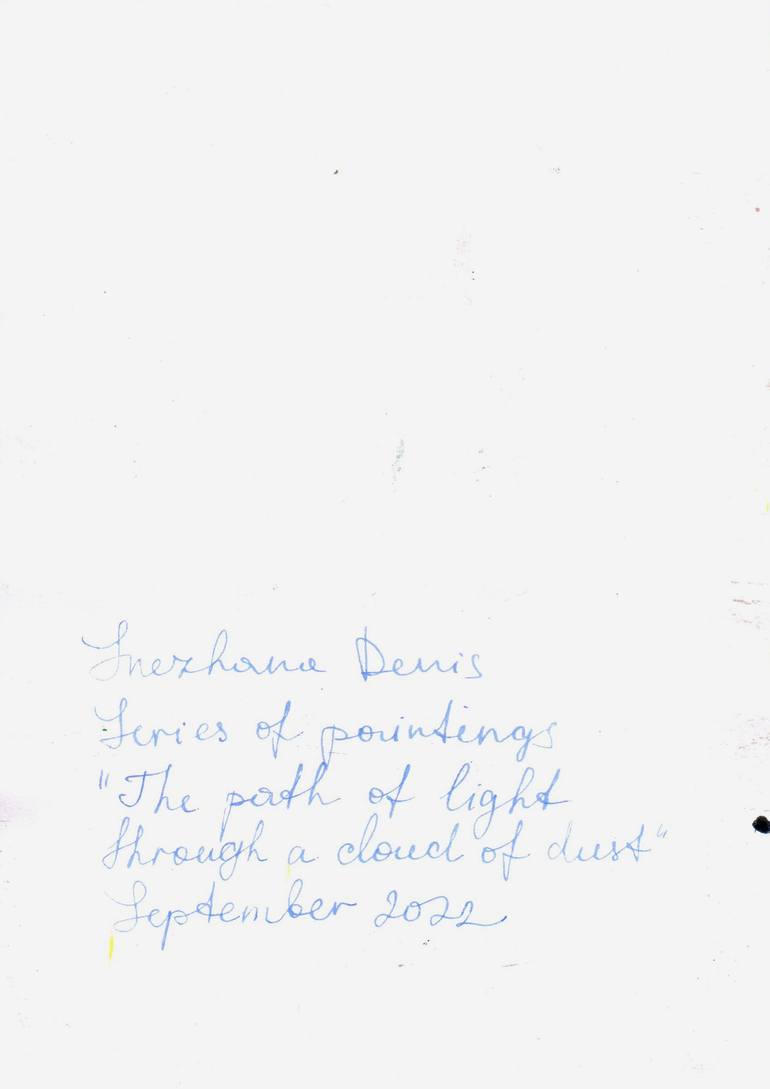 Snezhana Denis
Series of paintings
"The path of light
through a cloud of dust"
September 2022